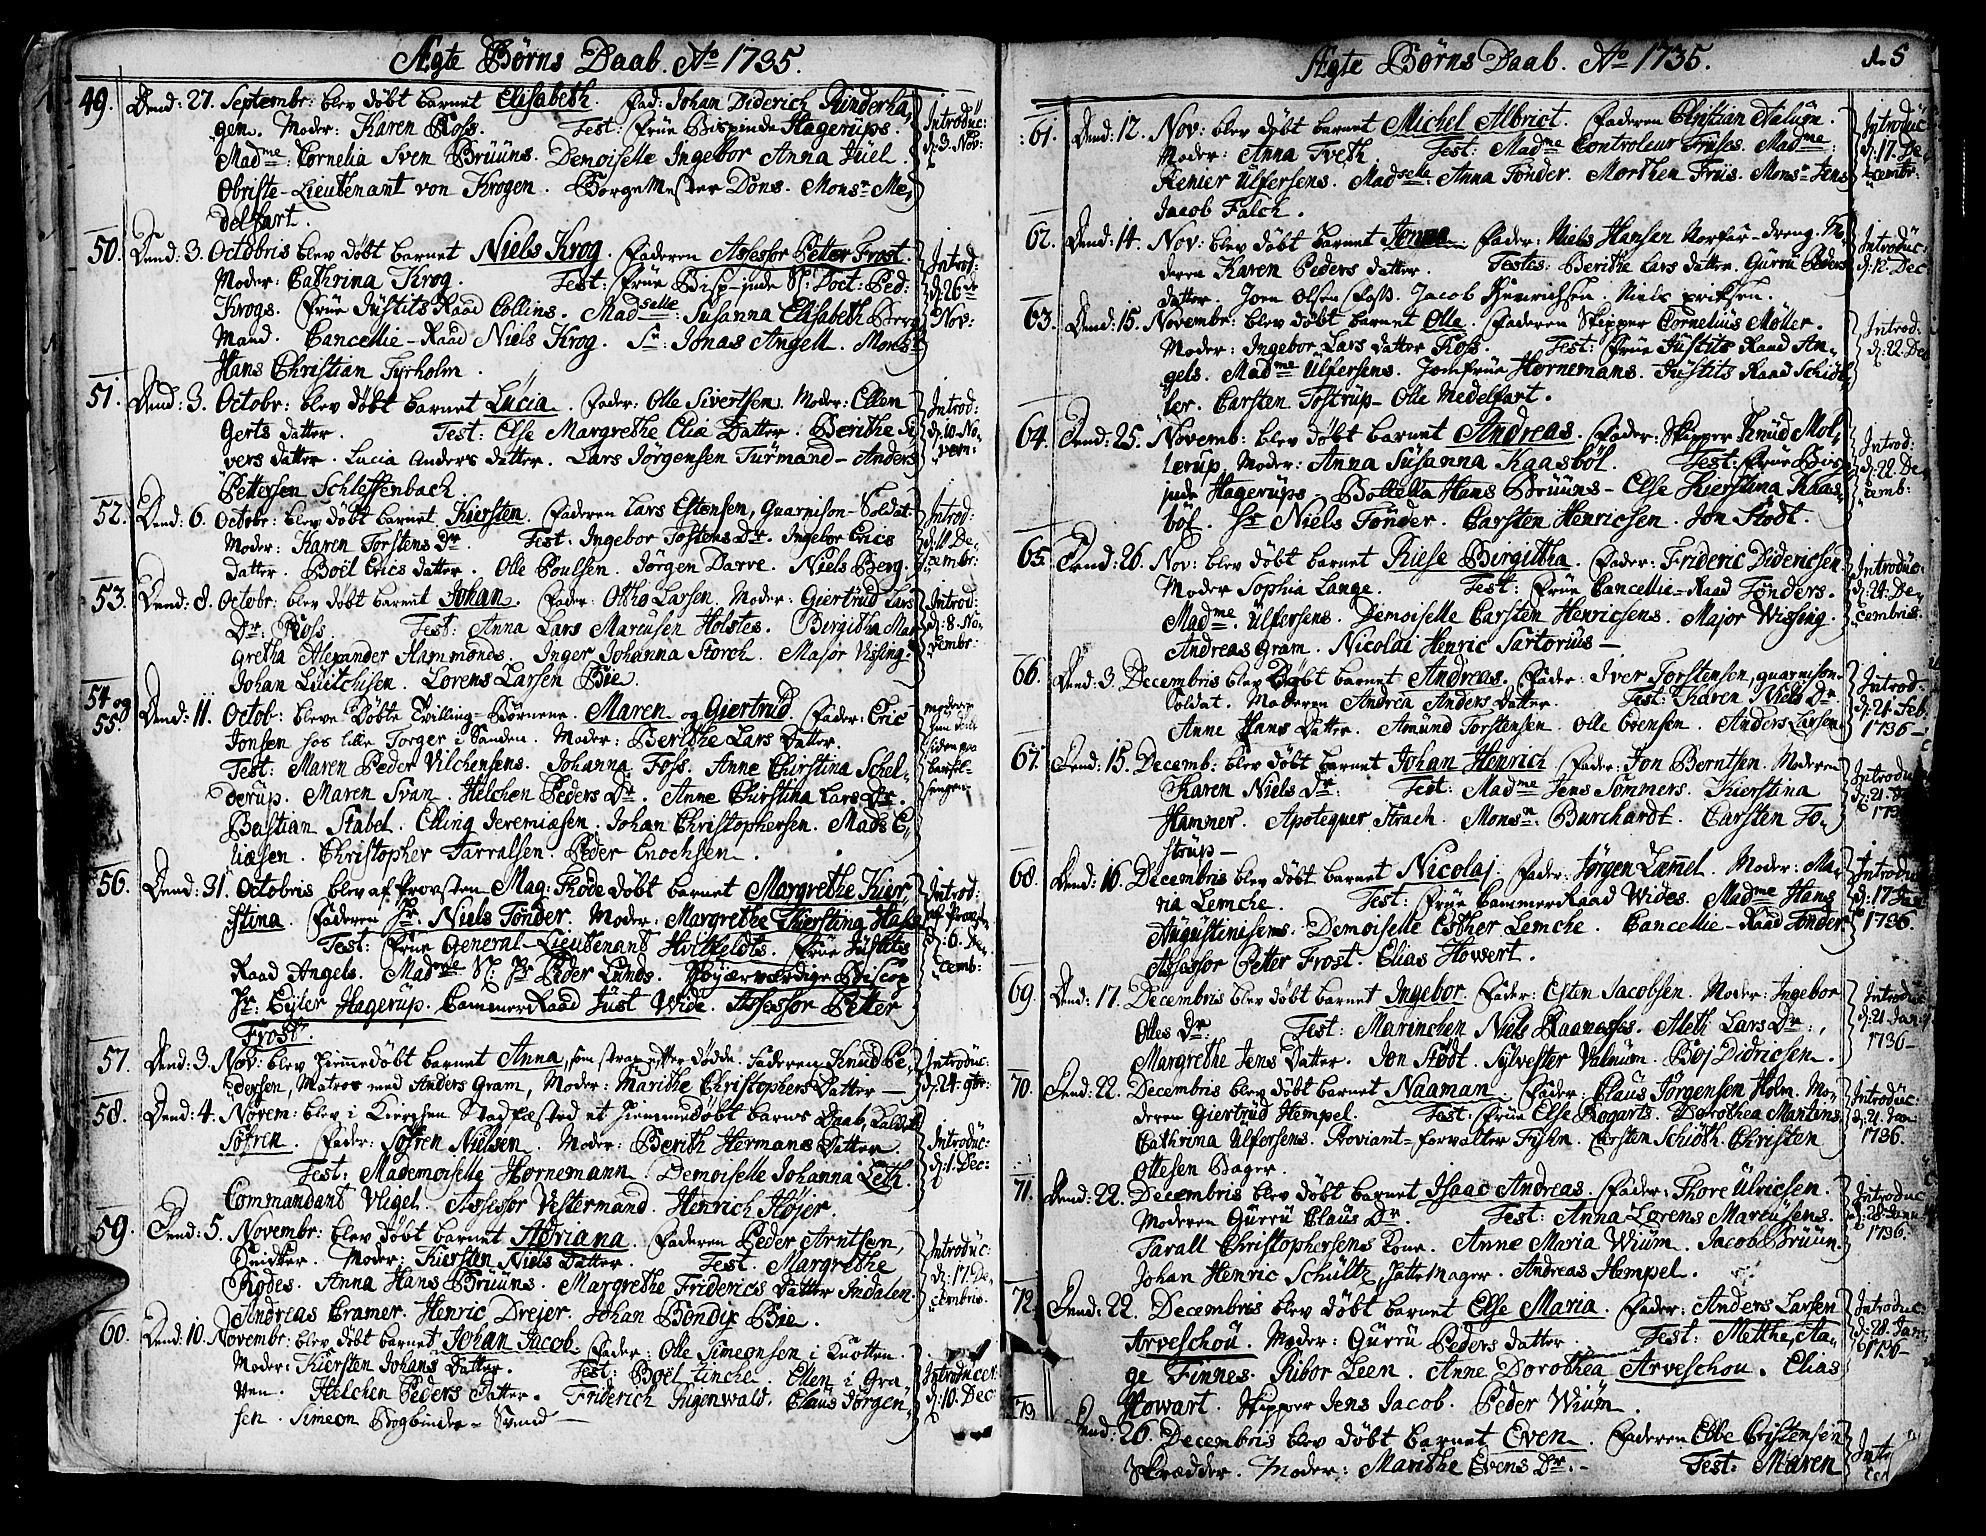 Ægte Børns Daab. Ao 1735.
49. Dend: 27. Septembr: blev døbt barnet Elisabeth. Fad: Johan Diderich Rinderha,
gen. Moder: Karen Ross. Test: Frue Bispinde Hagerups.
Madme: Cornelia Sven Brüüns. Demoiselle Ingebor Anna Juel.
Obriste-Lieutenant von Krogen. BorgeMester Dons. Monsr Me,
delfart.
Introduc:
d: 3. Nov:
50. Dend: 3. Octobris blev døbt barnet Niels Krog. Faderen Assessor Petter Frost.
Moder: Cathrina Krog. Test: Frue Bisp-inde Sl: Doct: Ped:
Krogs. Frue Justits Raad Collins. Madselle: Susanna Elisabeth Berg
Mand. Cancellie-Raad Niels Krog. Sr: Jonas Angell. Monsr
Hans Christian Tyrholm.
Introd:
d: 26 de
Nov:
51. Dend: 3. Octobr: blev døbt barnet Lucia. Fader: Olle Sivertsen. Moder: Ellen
Gerts datter. Test: Else Margrethe Eliæ Datter. Berithe Si
vers datter. Lucia Anders datter. Lars Jørgensen Turmand - Anders
Pettersen Schleffenbach.
Introd:
d: 10. No,
vem:
52. Dend: 6. Octobr: blev døbt barnet Kiersten. Faderen Lars Estensen, Guarnison-Soldat
Moder: Karen Torstens Dr. Test: Ingebor Tostens Dr. Ingebor Erics
Datter. Boël Erics datter. Olle Poulsen. Jørgen Darre. Niels Berg.
Introd:
d: 11 De,
cembr:
53. Dend: 8. Octobr: blev døbt barnet Johan. Fader: Ottho Larsen. Moder: Giertrud Lars
Dr: Ross. Test: Anna Lars Marcusen Holstes. Bergitha Mar
gretha Alexander Hammonds. Inger Johanna Storch. Major Vissing.
Johan Luitchisen. Lorens Larsen Bie.
Introd:
d: 8. No,
vembr:
54 og
55. Dend: 11. Octob: bleve døbte Tvilling-Børnene. Maren og Giertrud. Fader: Eric
Jonsen hos lille Torger i Sanden. Moder: Berithe Lars Datter.
Test: Maren Peder Vilchensens. Johanna Foss. Anne Chirstina Schel-
derup. Maren Svan. Helchen Peders Dr. Anne Chirstina Lars Dr.
Bastian Stabel. Elling Jeremiæsen. Johan Christophersen. Mads E,
liæsen. Christopher Tarralsen. Peder Enochsen.
moderen
paa
barsel-
sengen
56. Dend: 31. Octobris blev af Provsten Mag: Thode døbt barnet Margrethe Kier,
stina. Faderen Hr. Niels Tønder. Moder: Margrethe Chierstina Hass
Test: Frue General-Lieutenant Hvitfeldts. Frue Justits
Raad Angels. Madme Sl: Hr Peder Lunds. Høyærværdige Biscop
Hr: Eyler Hagerup. CammerRaad Just Wide. Assessor Petter
Frost.
Introd:
af Provsten
d: 6. De,
cemb:
57. Dend: 3. Nov: blev hiemmedøbt barnet Anna, som strax etter dødde. Faderen Knud Pe,
dersen, Matros med Anders Gram, Moder: Marithe Christophers Datter -
Introduc:
d: 24. 9br:
58. Dend: 4. Novem: blev i Kierchen Stadfæsted et hiemmedøbt barns Daab, kaldet
Søfren. Fader: Søfren Nielsen. Moder: Berith Hermans Datter.
Test: Mademoiselle Hornemann. Demoiselle Johanna Leth.
Commandant Vegel. Assessor Vestermand. Henrich Højer.
Introduc:
d: 1. Dec:
59. Dend: 5. Novembr: blev døbt barnet Adriana. Faderen Peder Arntsen,
Snedker. Moder: Kiersten Niels Datter. Test: Margrethe
Rodes. Anna Hans Brüüns. Margrethe Friderics Datter Indalen.
Andreas Cramer. Henric Drejer. Johan Bondix Bie.
Introduc:
d: 17. De,
cembris.
60. Dend: 10. Novembr: blev døbt barnet Johan Jacob. Fader: Olle Simeonsen i Knotten.
Moder: Kiersten Johans Datter. Test: Boël Finche. Ellen i Gra
ven. Helchen Peders Datter. Friderich Jugenwald. Claus Jørgen,
sen. Simeon Bogbinder-Svend -
Introducer:
d: 10. Dec
Ægte Børns Daab. Ao 1735.
15
61. Dend: 12. Nov: blev døbt barnet Michel Albrict. Faderen Christian Nalum.
Moder: Anna Tveth. Test: Madme Controleur Friises. Madme:
Renier Ulfersens. Madselle Anna Tønder. Morthen Friis. Monsr Jens
Jacob Falch.
Introduc
d: 17. De,
cembr:
62. Dend: 14. Nov: blev døbt barnet Jonna. Fader: Niels Hansen Norfar-dreng. Mo
deren Karen Peders datter. Testes: Berithe Lars datter. Gurru Peders
datter. Joen Olsen Foss. Jacob Henrichsen. Niels Eriksen.
Introduc:
d: 12. Dec
63. Dend: 15. Novembr: blev døbt barnet Olle. Faderen Skipper Cornelius Møller.
Moder: Ingebor Lars datter Ross. Test: Frue Justits Raad An,
gels. Madme Ulfersens. Jomfrue Hornemans. Justits Raad Schidt
ler. Carsten Tostrup - Olle Medelfart.
Introd:
d: 22. Dec
64. Dend: 25. Novemb: blev døbt barnet Andreas. Fader: Skipper Knud Mol,
lerup. Moder: Anna Susanna Kaasbøl. Test: Frue Bisp
inde Hagerups - Bottella Hans Brüüns - Else Kierstina Kaas-
bøl. Hr Niels Tønder. Carsten Henricsen. Jon Stodt.
Introd:
d: 22. De,
cemb:
65. Dend: 26. Nov: blev døbt barnet Riese Birgitha. Fader: Frideric Didericsen.
Moder Sophia Lange. Test: Frue Cancellie-Raad Tønders.
Madme. Ulfersens. Demoiselle Carsten Henricsens. Major Wissing.
Andreas Gram. Nicolai Henric Sartorius -
Introduc:
d: 24. De,
cembris.
66. Dend: 3. Decembris blev døbt barnet Andreas. Fader: Iver Torstensen, guarnison-
Soldat. Moderen Andrea Anders Datter. Test: Karen Niels Dr
Anne Hans Datter. Amund Torstensen. Olle Evensen. Anders Larsen
Introd-
d: 21. Feb.
1736 -
67. Dend: 15. Decemb: blev døbt barnet Johan Henrich. Fader: Jon Berntsen. Moderen
Karen Niels Dr. Test: Madme Jens Sommers. Kierstina
Hammer. Apotequer Strach. Monsr. Burchardt. Carsten To,
strup -
Introduc
d: 21.
68. Dend: 16. Decembris blev døbt barnet Nicolaj. Fader: Jørgen Lamel. Moder: Ma,
ria Lemche. Test: Frue CammerRaad Wides. Madme Hans
Augustinisens. Demoiselle Esther Lemche. Cancellie-Raad Tønder.
Assessor Petter Frost. Elias Howert.
Introduc
d: 17 Jan
1736.
69. Dend: 17. Decembris blev døbt barnet Ingebor. Fader: Esten Jacobsen. Moder: Ingebor
Olles Dr. Test: Marinchen Niels Raanesses. Aleth Lars Dr:,
Margrethe Jens Datter. Jon Stødt. Sylvester Valnum. Boj Didricsen.
Introduc
d: 21. Jan:
1736 -
70. Dend: 22. Decembris blev døbt barnet Naaman. Fader: Claus Jørgensen Holm. Mo,
deren Giertrud Hempel. Test: Frue Else Rogarts. Dorothea Martens
Cathrina Ulfersens. Proviant-forvalter Fyhn. Carsten Schiøth. Christen
Ottesen Bager.
Introduc:
d: 21. Jan
1736.
71. Dend: 22. Decembris blev døbt barnet Isaac Andreas. Fader: Thore Ulricsen.
Moderen Gurru Claus Dr. Test: Anna Lorens Marcusens.
Tarall Christophersens Kone. Anne Maria Wium. Jacob Bruun.
Johan Henric Schultz, Hattemager. Andreas Hempel.
Introduc
d: 28. Janu
1736.
72. Dend: 22. Decembris blev døbt barnet Else Maria. Fader: Anders Larsen
Arveschou. Moder: Gurru Peders datter. Test: Metthe Aa,
ge Finnes. Ribor Leen. Anne Dorothea Arveschou. Elias
Howart. Skipper Jens Jacob. Peder Wium.
Introduc:
d: 28. Jan,
1736 -
73. Dend: 26. Decembris blev døbt barnet Even. Faderen Ebbe Cristensen
Skrædder. Moder: Marithe Evens Dr. - Test: Maren